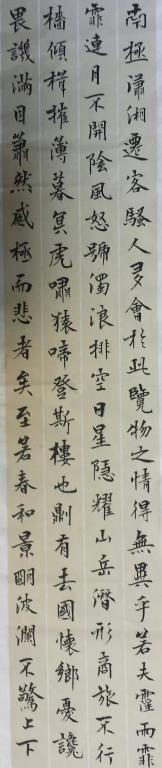 南極瀟湘遷客騷人多會於此覽物之情得無異乎若夫霪雨霏
霏連月不開陰風怒號濁浪排空日星隱耀山岳潛形商旅不行
檣傾楫摧薄暮冥虎嘯猿啼登斯樓也則有去國懷鄉憂讒
畏譏滿目蕭然感極而悲者矣至若春和景明波瀾不驚上下